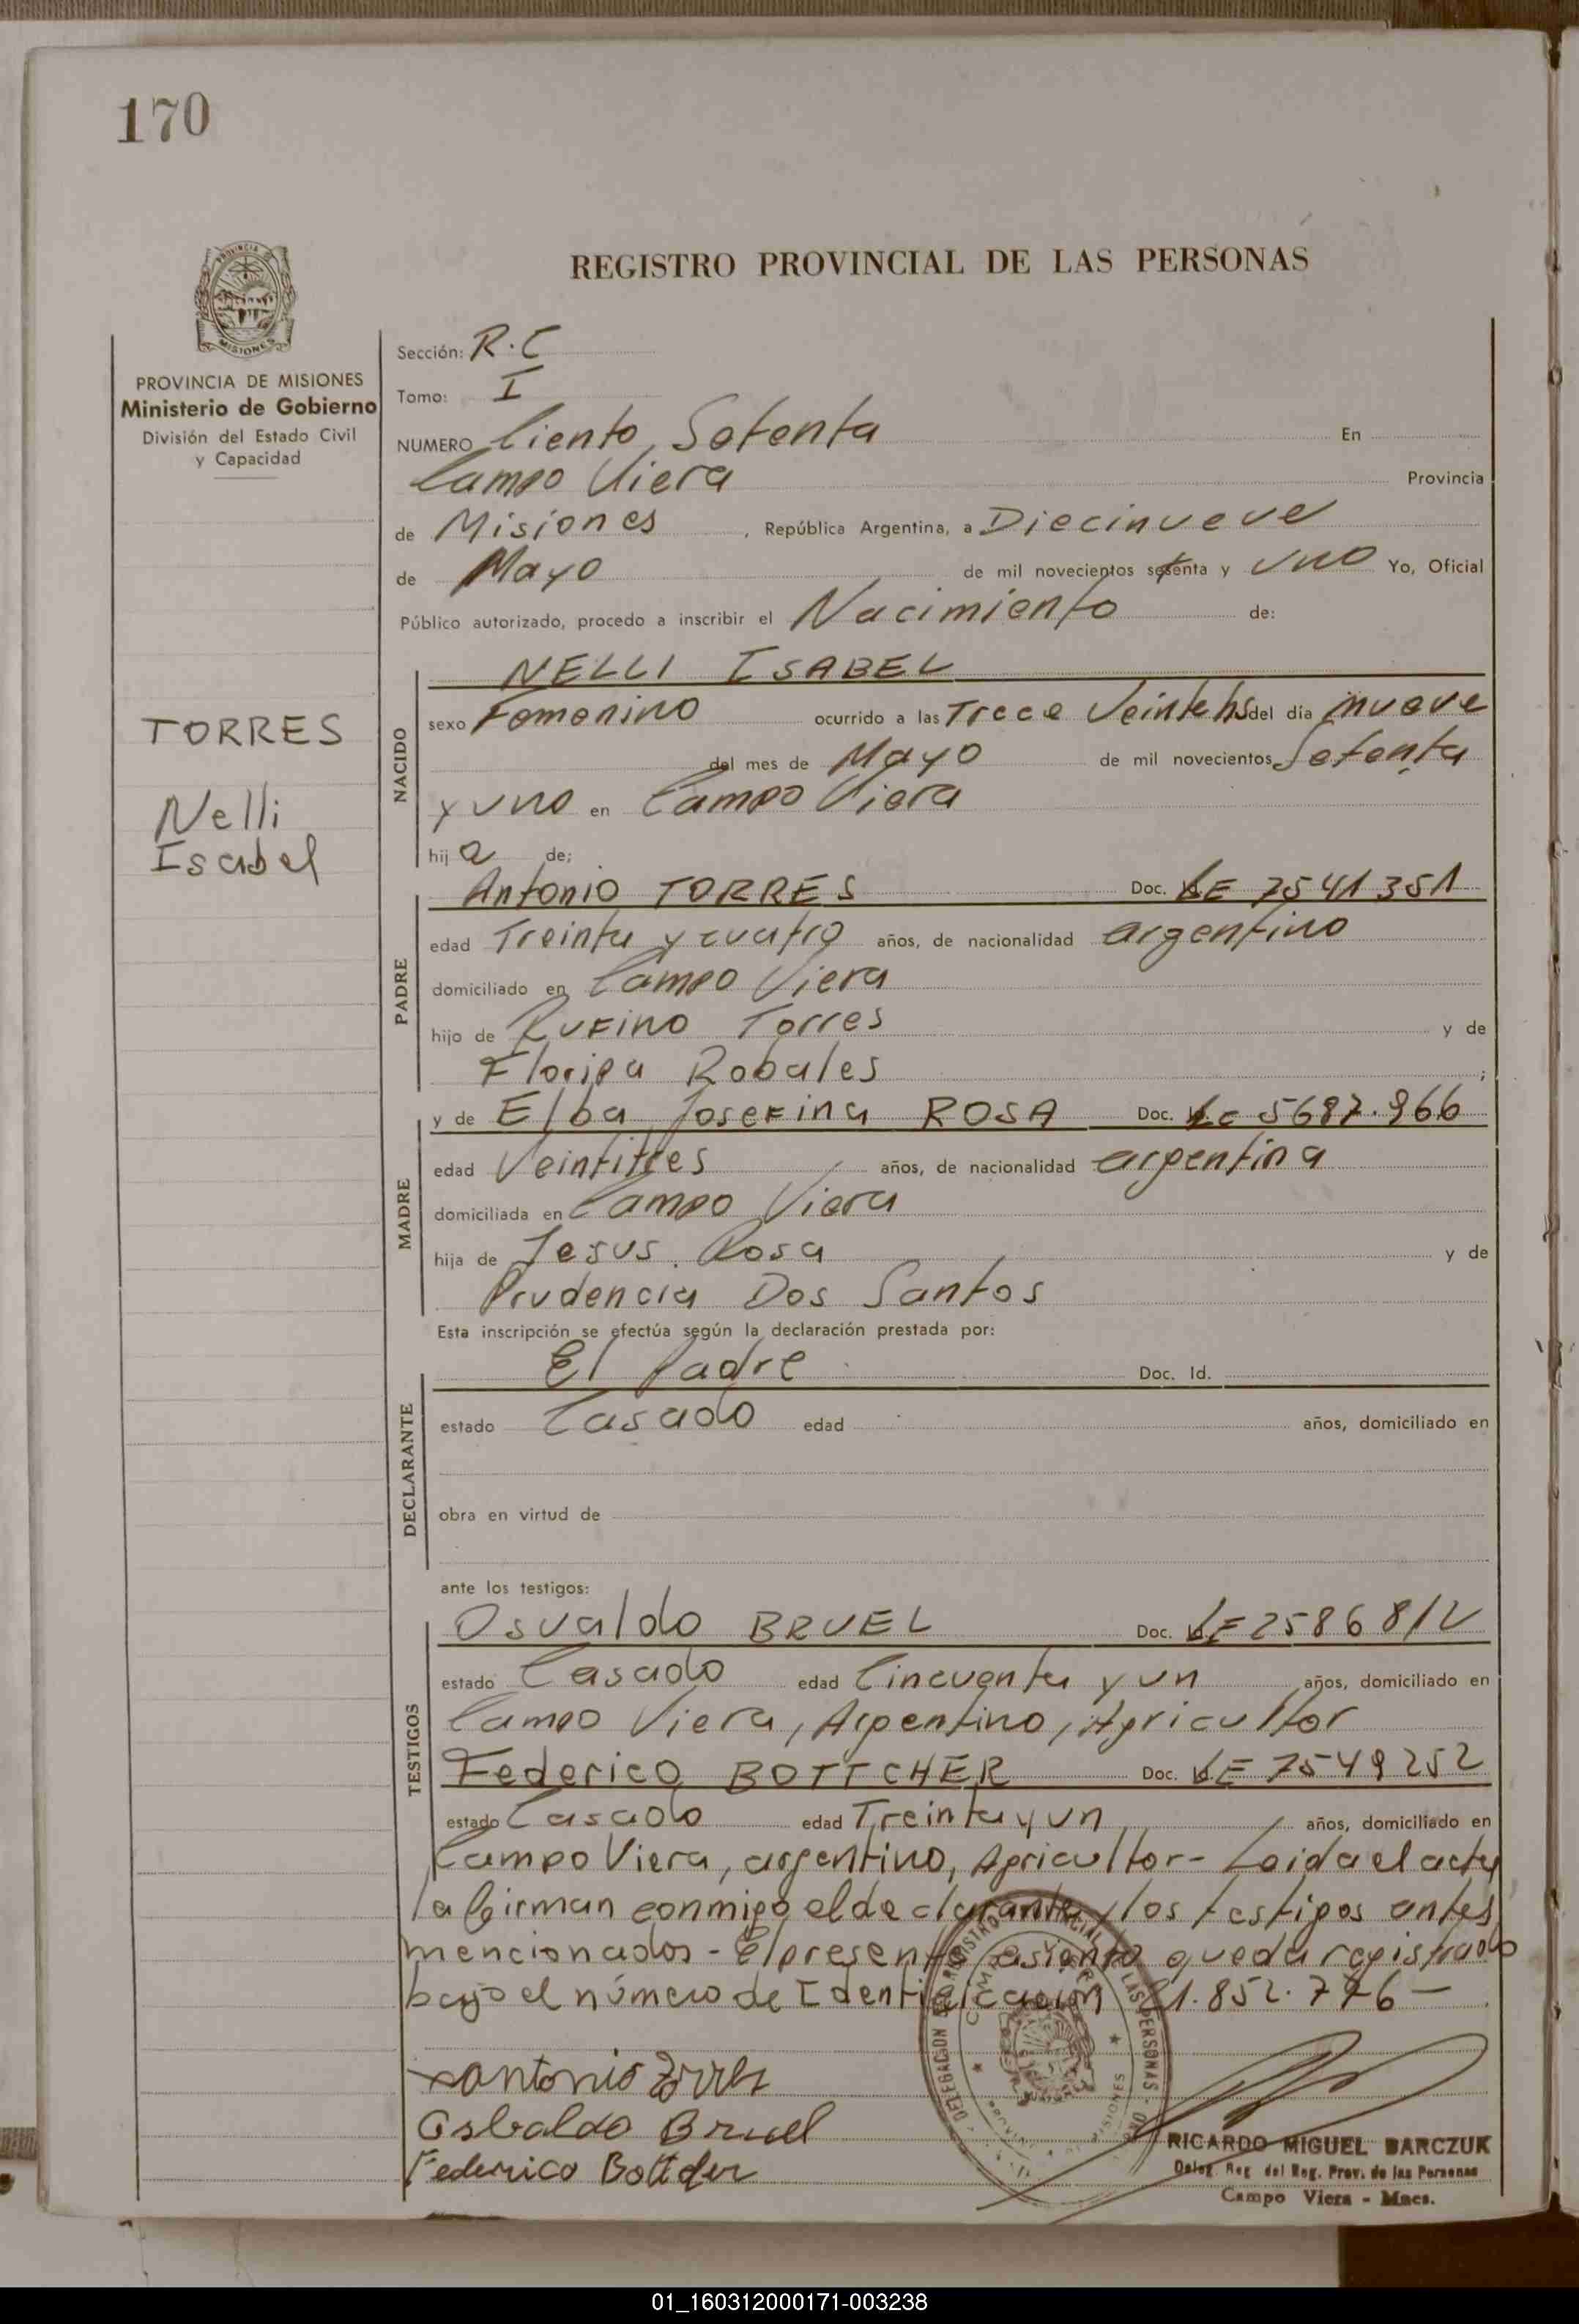 170
REGISTRO PROVINCIAL DE LAS PERSONAS
PROVINCIA DE MISIONES
Ministerio de Gobierno
División del Estado Civil
y Capacidad
TORRES
Nelli
Isabel
Sección: R.C
Tomo: I
NUMERO Ciento Setenta En
Campo Viera Provincia
de Misiones, República Argentina, a Diecinueve
de Mayo de mil novecientos setenta y uno Yo, Oficial
Público autorizado, procedo a inscribir el Nacimiento de:
NACIDO
NELLI ISABEL
sexo Femenino ocurrido a las Trece Veinte hs del día nueve
del mes de Mayo de mil novecientos Setenta
y uno en Campo Viera
hija de:
PADRE
Antonio TORRES Doc. LE 7541351
edad Treinta y cuatro años, de nacionalidad argentino
domiciliado en Campo Viera
hijo de Rufino Torres y de
Floripa Robales ;
MADRE
y de Elba Josefina ROSA Doc. Lc 5687.966
edad Veintitres años, de nacionalidad argentina
domiciliada en Campo Viera
hija de Jesus Rosa y de
Prudencia Dos Santos
Esta inscripción se efectúa según la declaración prestada por:
DECLARANTE
El Padre Doc. Id.
estado Casado edad años, domiciliado en
obra en virtud de
ante los testigos:
TESTIGOS
Osvaldo BRUEL Doc. LE
estado Casado edad Cincuenta y un años, domiciliado en
Campo Viera, Argentino, Agricultor
Federico BOTTCHER Doc. LE 7549252
estado Casado edad Treinta y un años, domiciliado en
Campo Viera, argentino, Agricultor - Leida el acta
la firman conmigo el declarante y los testigos antes
mencionados - El presente asiento queda registrado
bajo el número de Identificación 21.852.776 -
Antonio Torres
Osbaldo Bruel
Federico Bottcher
DELEGACION REGISTRO PROVINCIAL DE LAS PERSONAS
MISIONES
RICARDO MIGUEL BARCZUK
Deleg. Reg. del Reg. Prov. de las Personas
Campo Viera - Mnes.
01_160312000171-003238